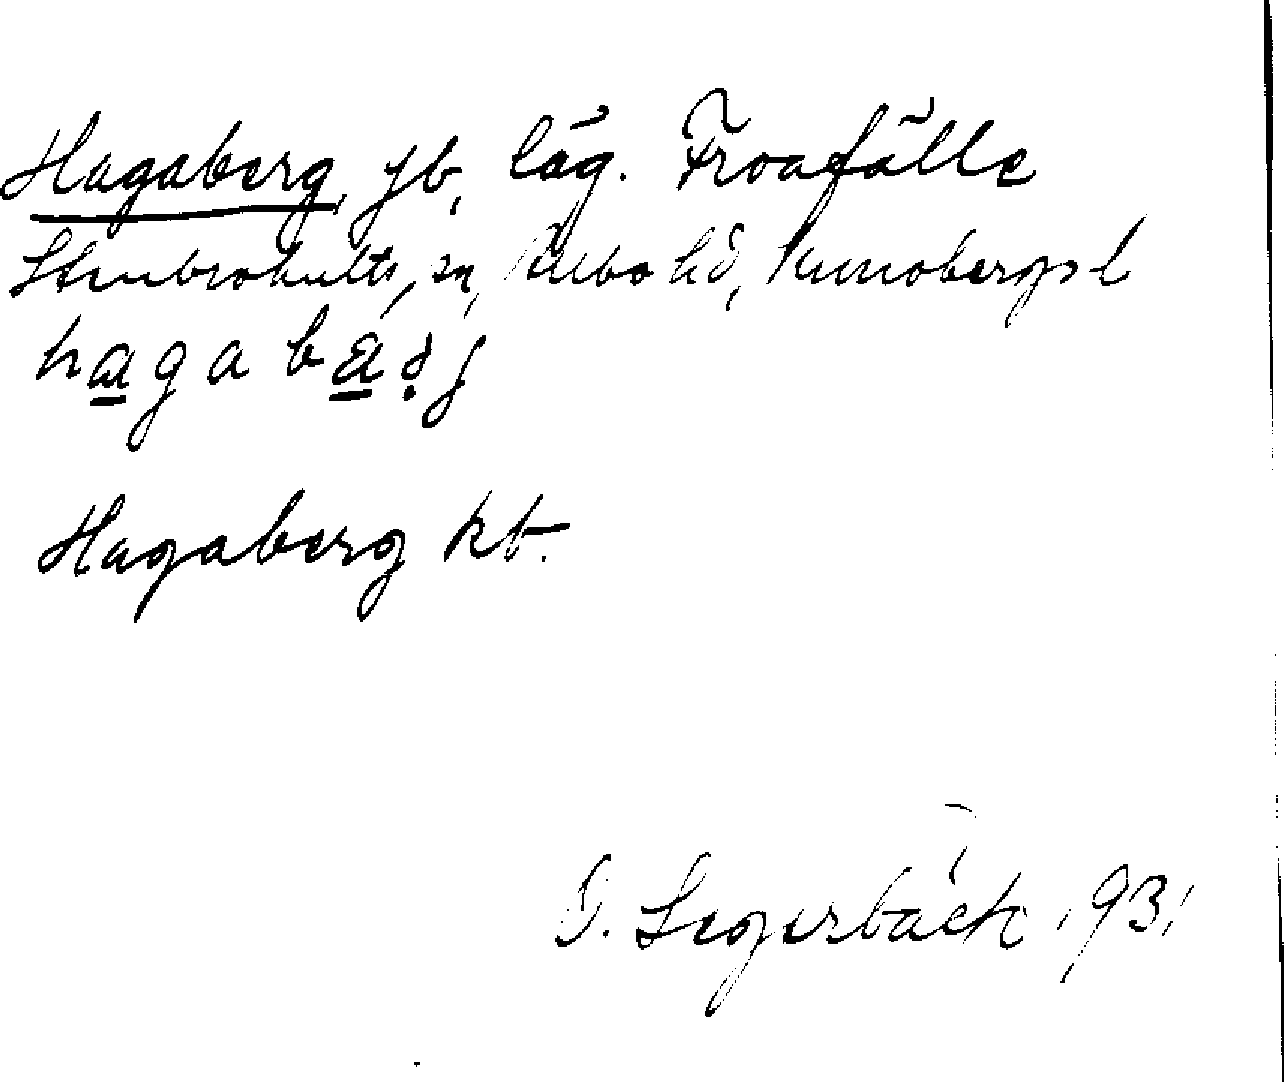 Hagaberg, jb, läg. Froafälle
Stenbrohults, sn, Allbo hd, Kronobergs l
hagabärj
Hagaberg kt.
G. Segerbäck 1931